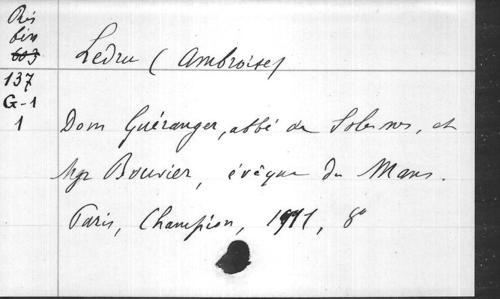 Rés
bis
603
137
G-1
1
Ledru (Ambroise)
Dom Guéranger, abbé de Solesmes, et
Mgr Bouvier, évêque du Mans.
Paris, Champion, 1911, 8°